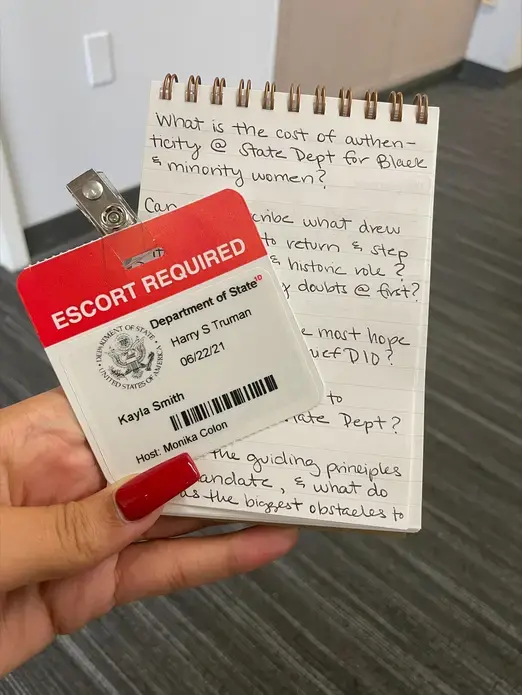 What is the cost of authen-
ticity @ State Dept for Black
& minority women?
Can cribe what drew
to return & step
& historic role?
doubts @ first?
e most hope
ief DIO?
to
ate Dept?
the guiding principles
andate, & what do
as the biggest obstacles to
IT
ESCORT REQUIRED
Department of State
Harry S Truman
06/22/21
DEPARTMENT OF STATE
UNITED STATES OF AMERICA
Kayla Smith
Host: Monika Colon